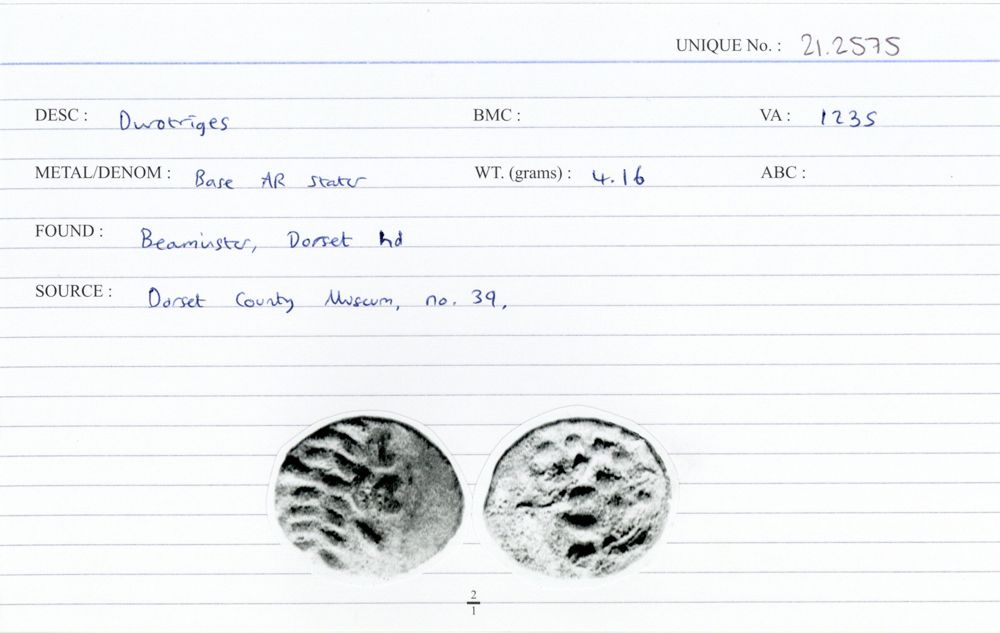 UNIQUE No. : 21.2575
DESC : Durotriges BMC : VA : 1235
METAL/DENOM : Base AR stater WT. (grams) : 4.16 ABC :
FOUND : Beaminster, Dorset hd
SOURCE : Dorset County Museum, no. 39.
2
1